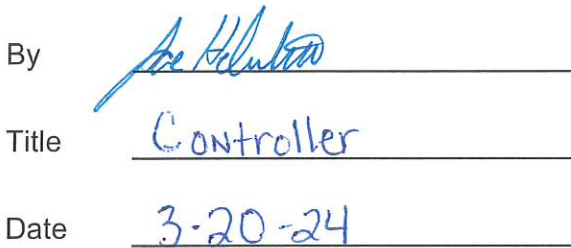 By Joe
Title Controller
Date 3-20-24